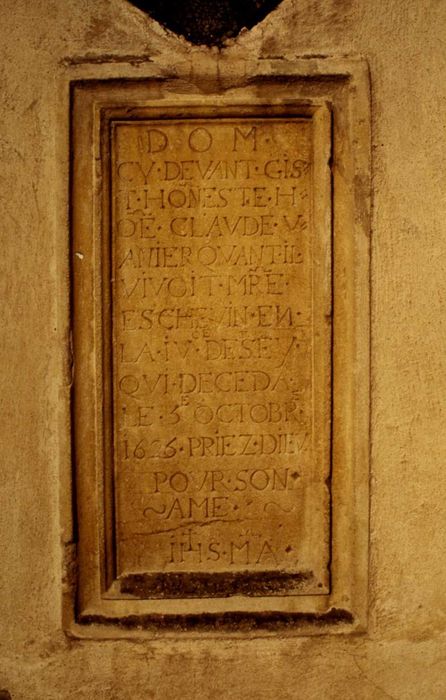 D O M ·
CY · DEVANT · GIS
T · HÕNESTE · H
ÕE · CLAVDE · V
ANIER QVANT · IL
VIVOIT · MRE ·
ESCHEVIN · EN
LA · IV DE SEY ·
QVI · DECEDA ·
LE · 5E OCTOBRE
1626 · PRIEZ · DIEV
POVR · SON ·
~ AME · ~
IHS · MA ·